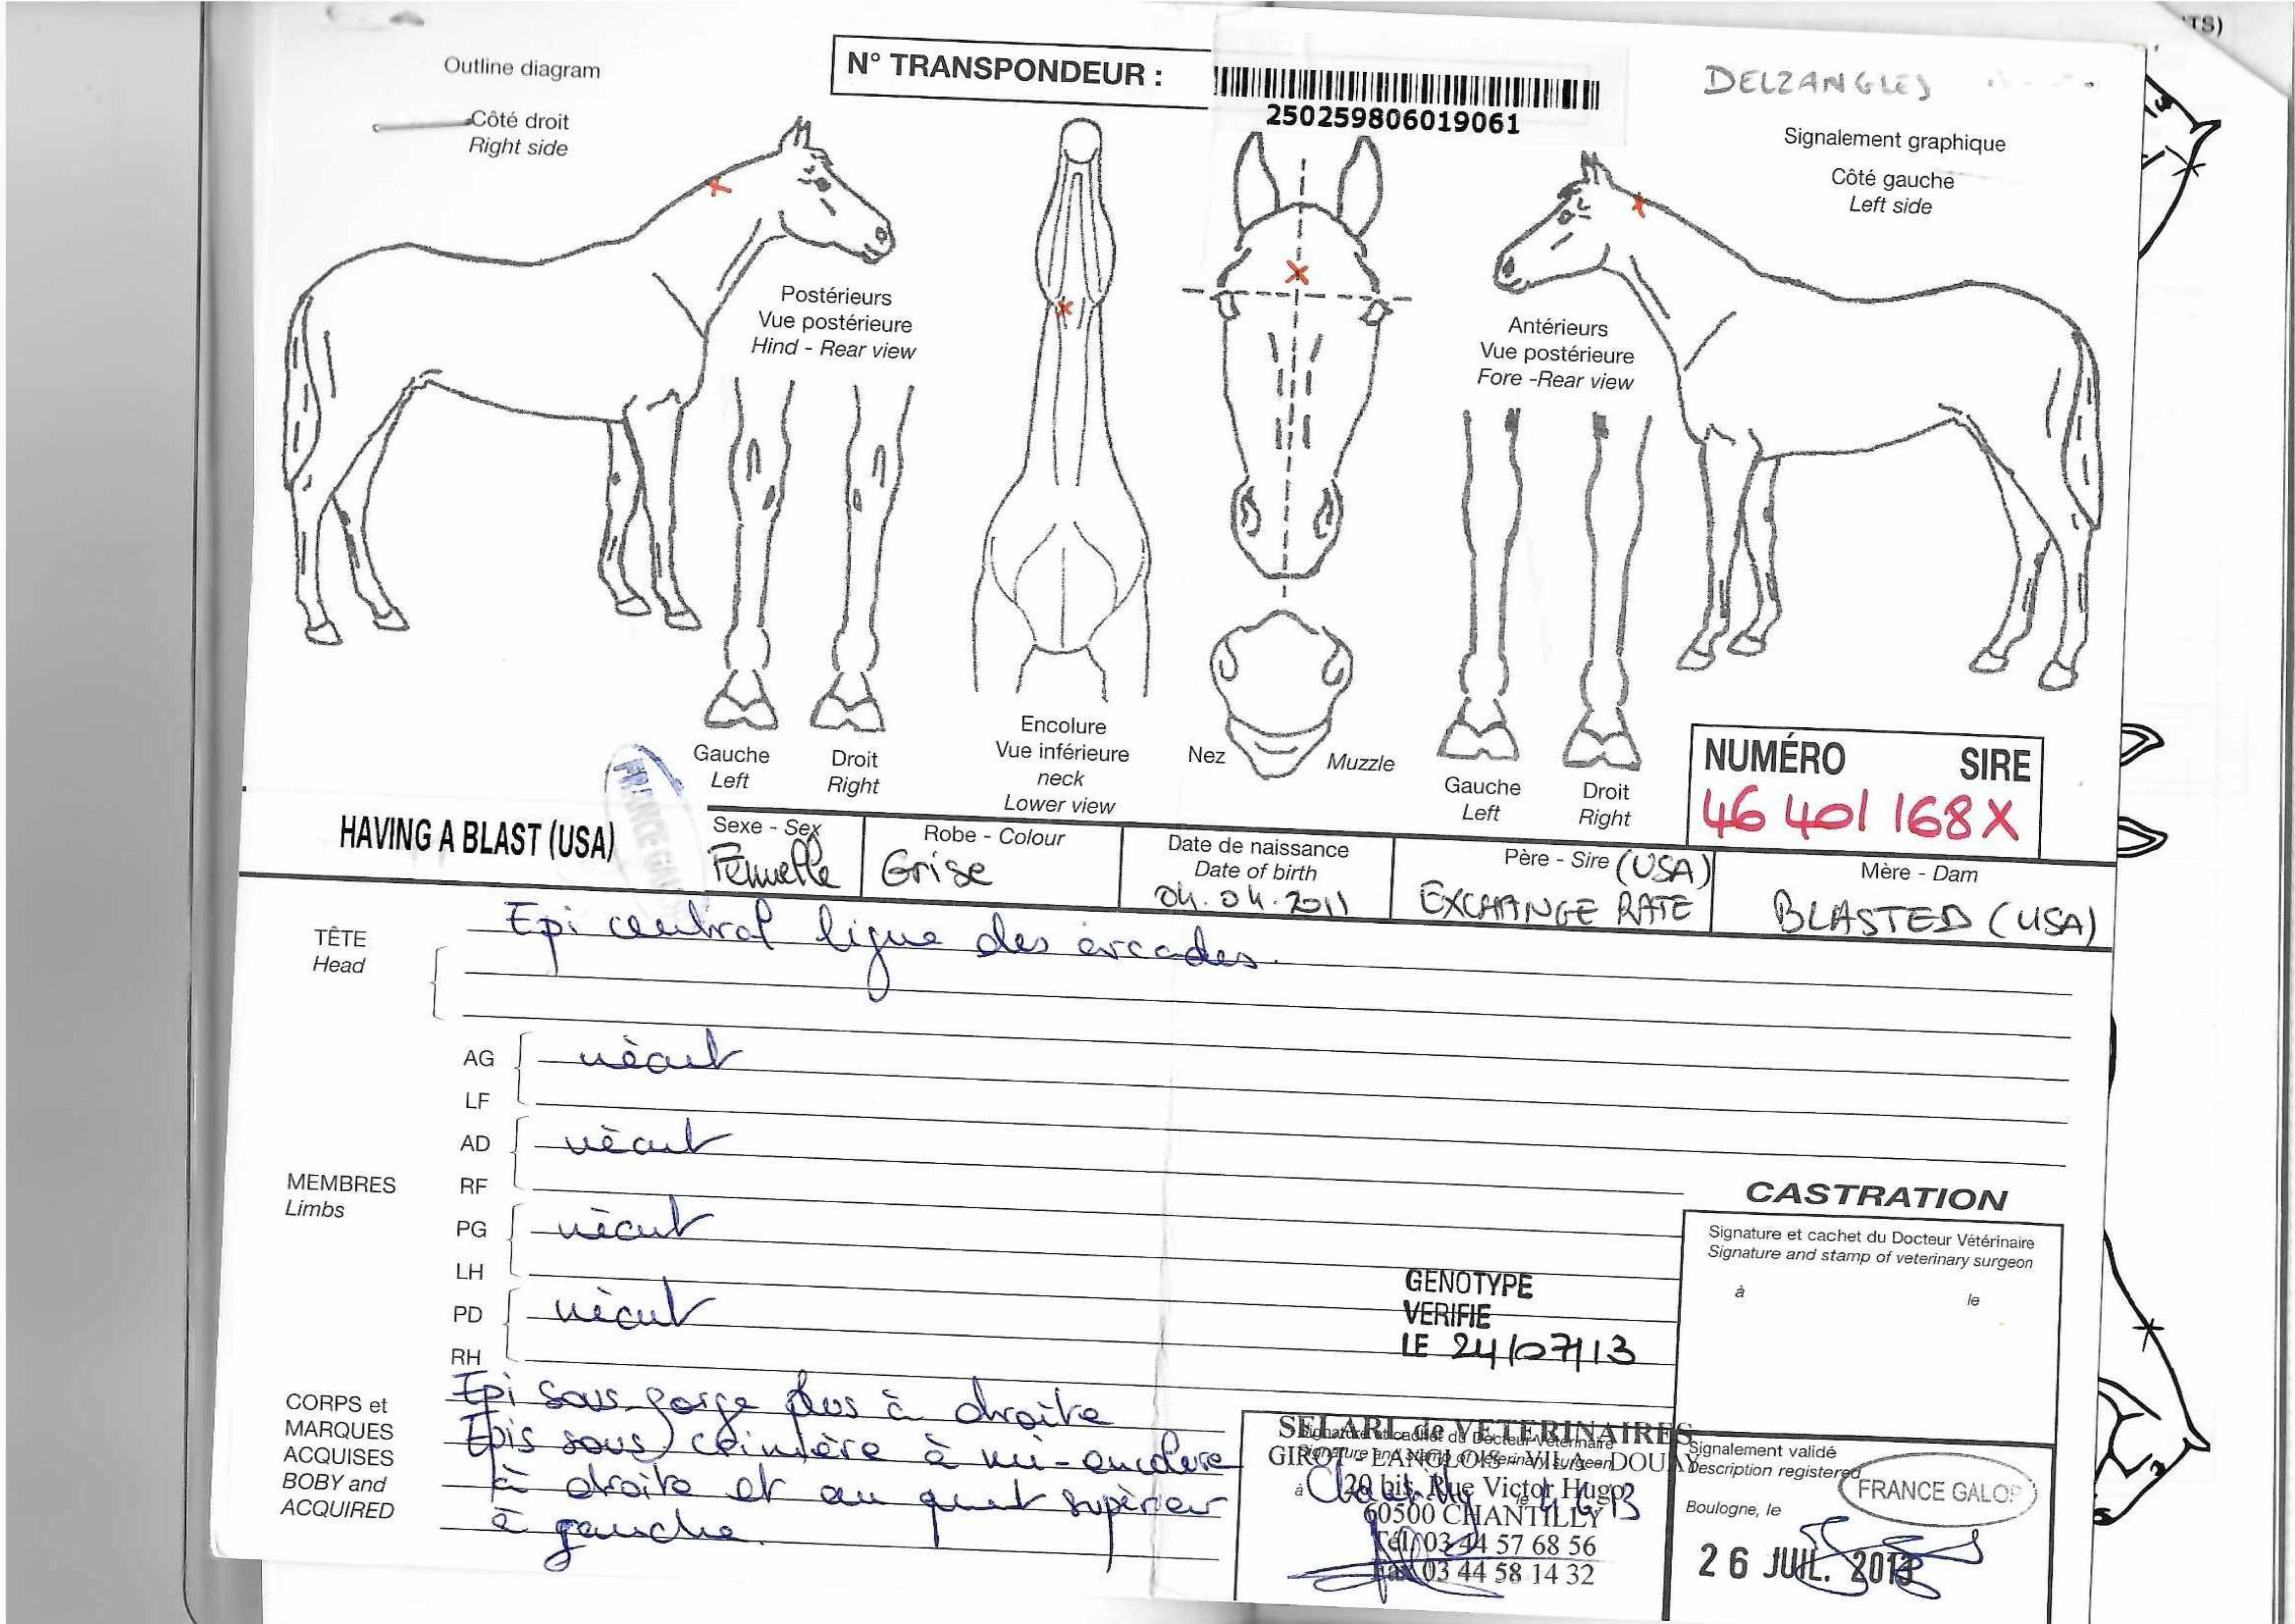 TS)
Outline diagram
N° TRANSPONDEUR :
250259806019061
DELZANGLES
Côté droit
Right side
Signalement graphique
Côté gauche
Left side
Postérieurs
Vue postérieure
Hind - Rear view
Antérieurs
Vue postérieure
Fore -Rear view
Gauche
Left
Droit
Right
Encolure
Vue inférieure
neck
Lower view
Nez
Muzzle
Gauche
Left
Droit
Right
NUMÉRO SIRE
46 401 168X
FRANCE GALOP
HAVING A BLAST (USA)
Sexe - Sex
Femelle
Robe - Colour
Grise
Date de naissance
Date of birth
04.04.2011
Père - Sire (USA)
EXCHANGE RATE
Mère - Dam
BLASTED (USA)
TÊTE
Head
Epi central ligne des arcades.
MEMBRES
Limbs
AG
LF
néant
AD
RF
néant
PG
LH
néant
PD
RH
néant
GENOTYPE
VERIFIE
LE 24/07/13
CASTRATION
Signature et cachet du Docteur Vétérinaire
Signature and stamp of veterinary surgeon
à le
CORPS et
MARQUES
ACQUISES
BOBY and
ACQUIRED
Epi sous gorge plus à droite
Epis sous crinière à mi-encolure
à droite et au quart supérieur
à gauche.
SELARL de VETERINAIRES
Signature et cachet du Docteur Vétérinaire
Signature and stamp of veterinary surgeon
GIROT - LANGLOIS - VILA - DOUAY
à Chantilly le
20 bis, Rue Victor Hugo
60500 CHANTILLY
Tél. 03 44 57 68 56
Fax 03 44 58 14 32
Signalement validé
Description registered
FRANCE GALOP
Boulogne, le
26 JUIL. 2013